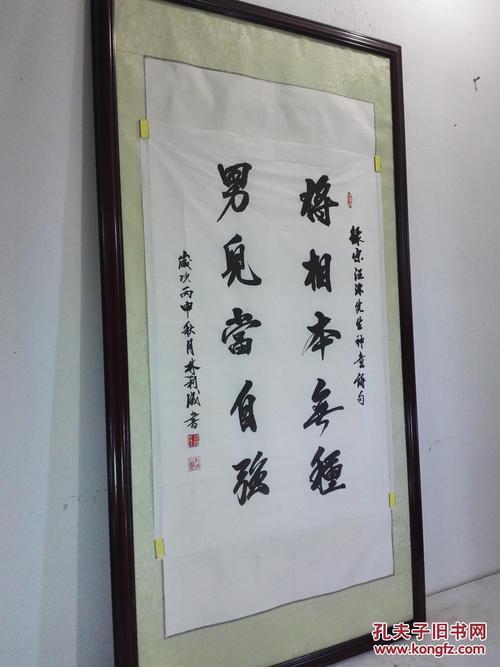 録宋汪洙先生神童詩句
将相本無種
男兒當自强
歲次丙申秋月林利成書
孔夫子旧书网
www.kongfz.com